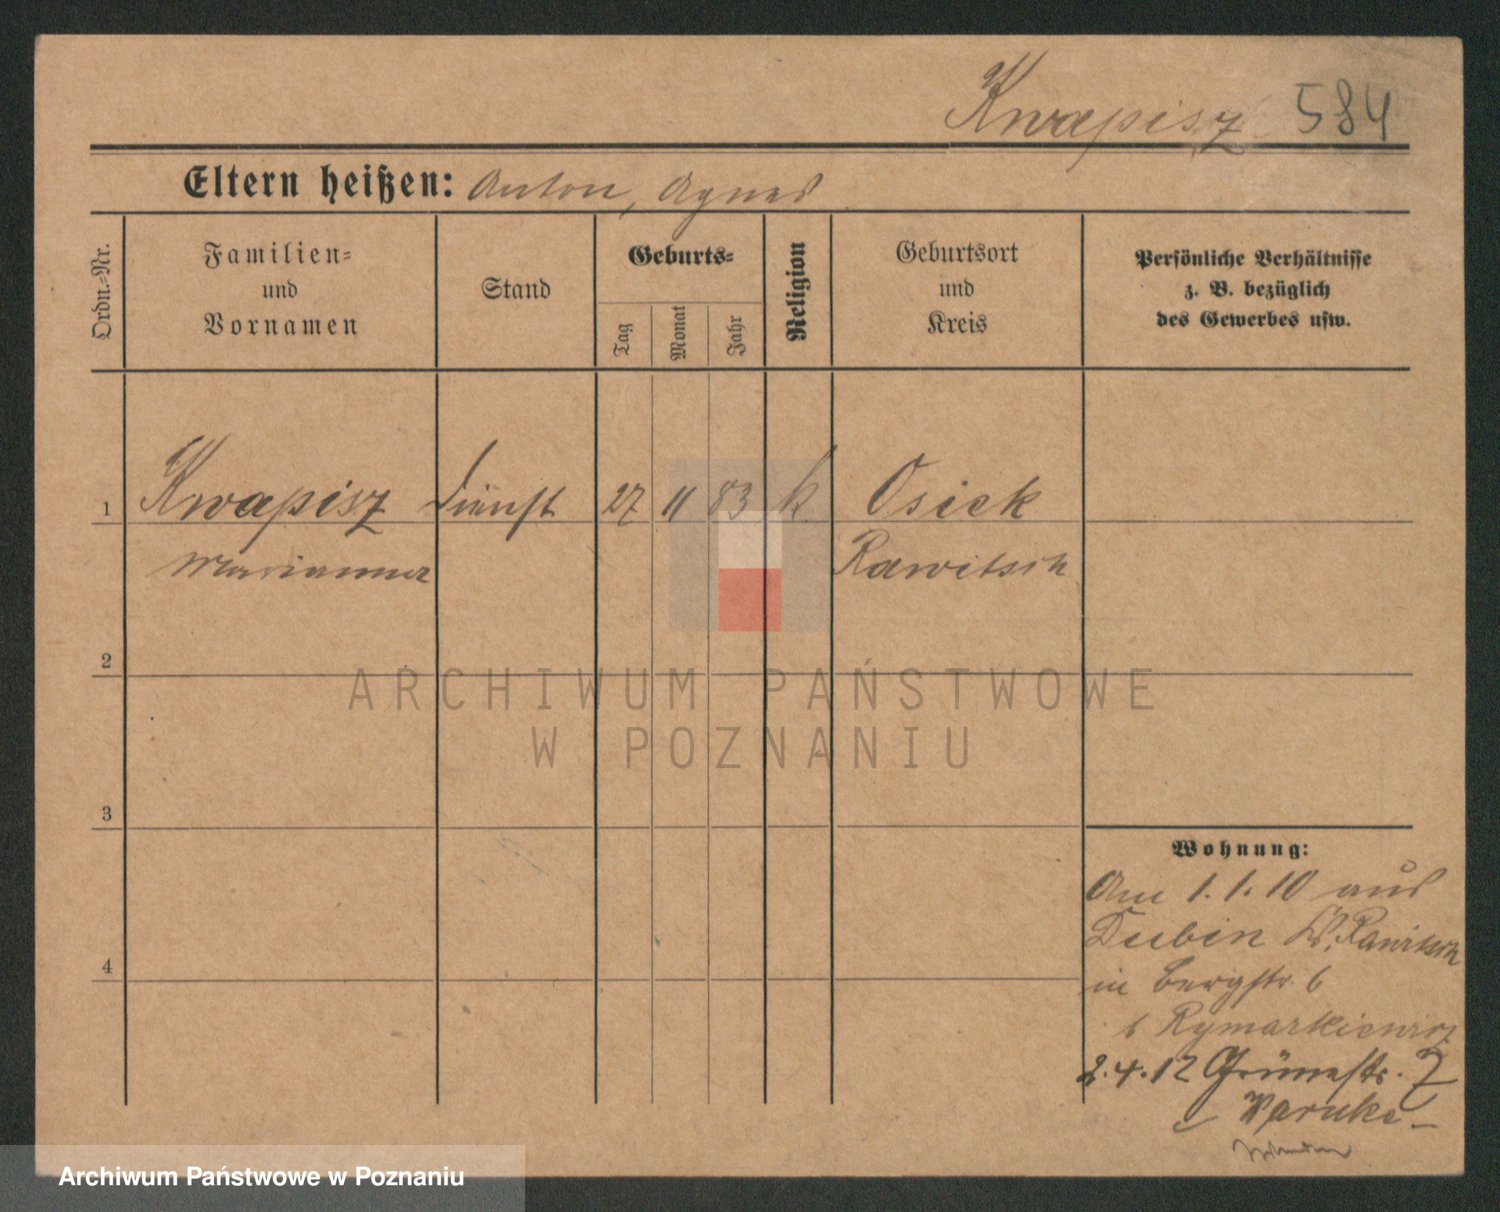 Kwapisz 584
Eltern heißen: Anton, Agnes
Ordn.-Nr.
Familien-
und
Vornamen
Stand
Geburts-
Tag
Monat
Jahr
Religion
Geburtsort
und
Kreis
Persönliche Verhältnisse
z. B. bezüglich
des Gewerbes usw.
1 Kwapisz Dienst 27 11 83 k Osiek
Marianna Rawitsch
2
ARCHIWUM PAŃSTWOWE
W POZNANIU
3
Wohnung:
Am 1.1.10 aus
Dubin Kr. Rawitsch
4
in Bergstr. 6
b Rymarkiewicz
2.4.12 Grünestr. 7
Warnke
Archiwum Państwowe w Poznaniu